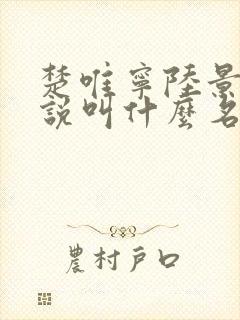 楚唯寧陸景
說叫什麼名
農村戶口